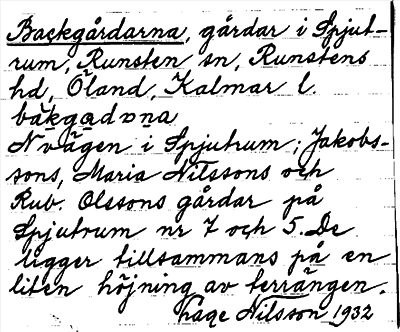 Backgårdarna, gårdar i Spjut-
rum, Runsten sn, Runstens
hd, Öland, Kalmar l.
bakgadɒna
N vägen i Spjutrum; Jakobs-
sons, Maria Nilssons och
Rub. Olssons gårdar på
Spjutrum nr 7 och 5. De
ligger tillsammans på en
liten höjning av terrängen.
Åage Nilsson 1932